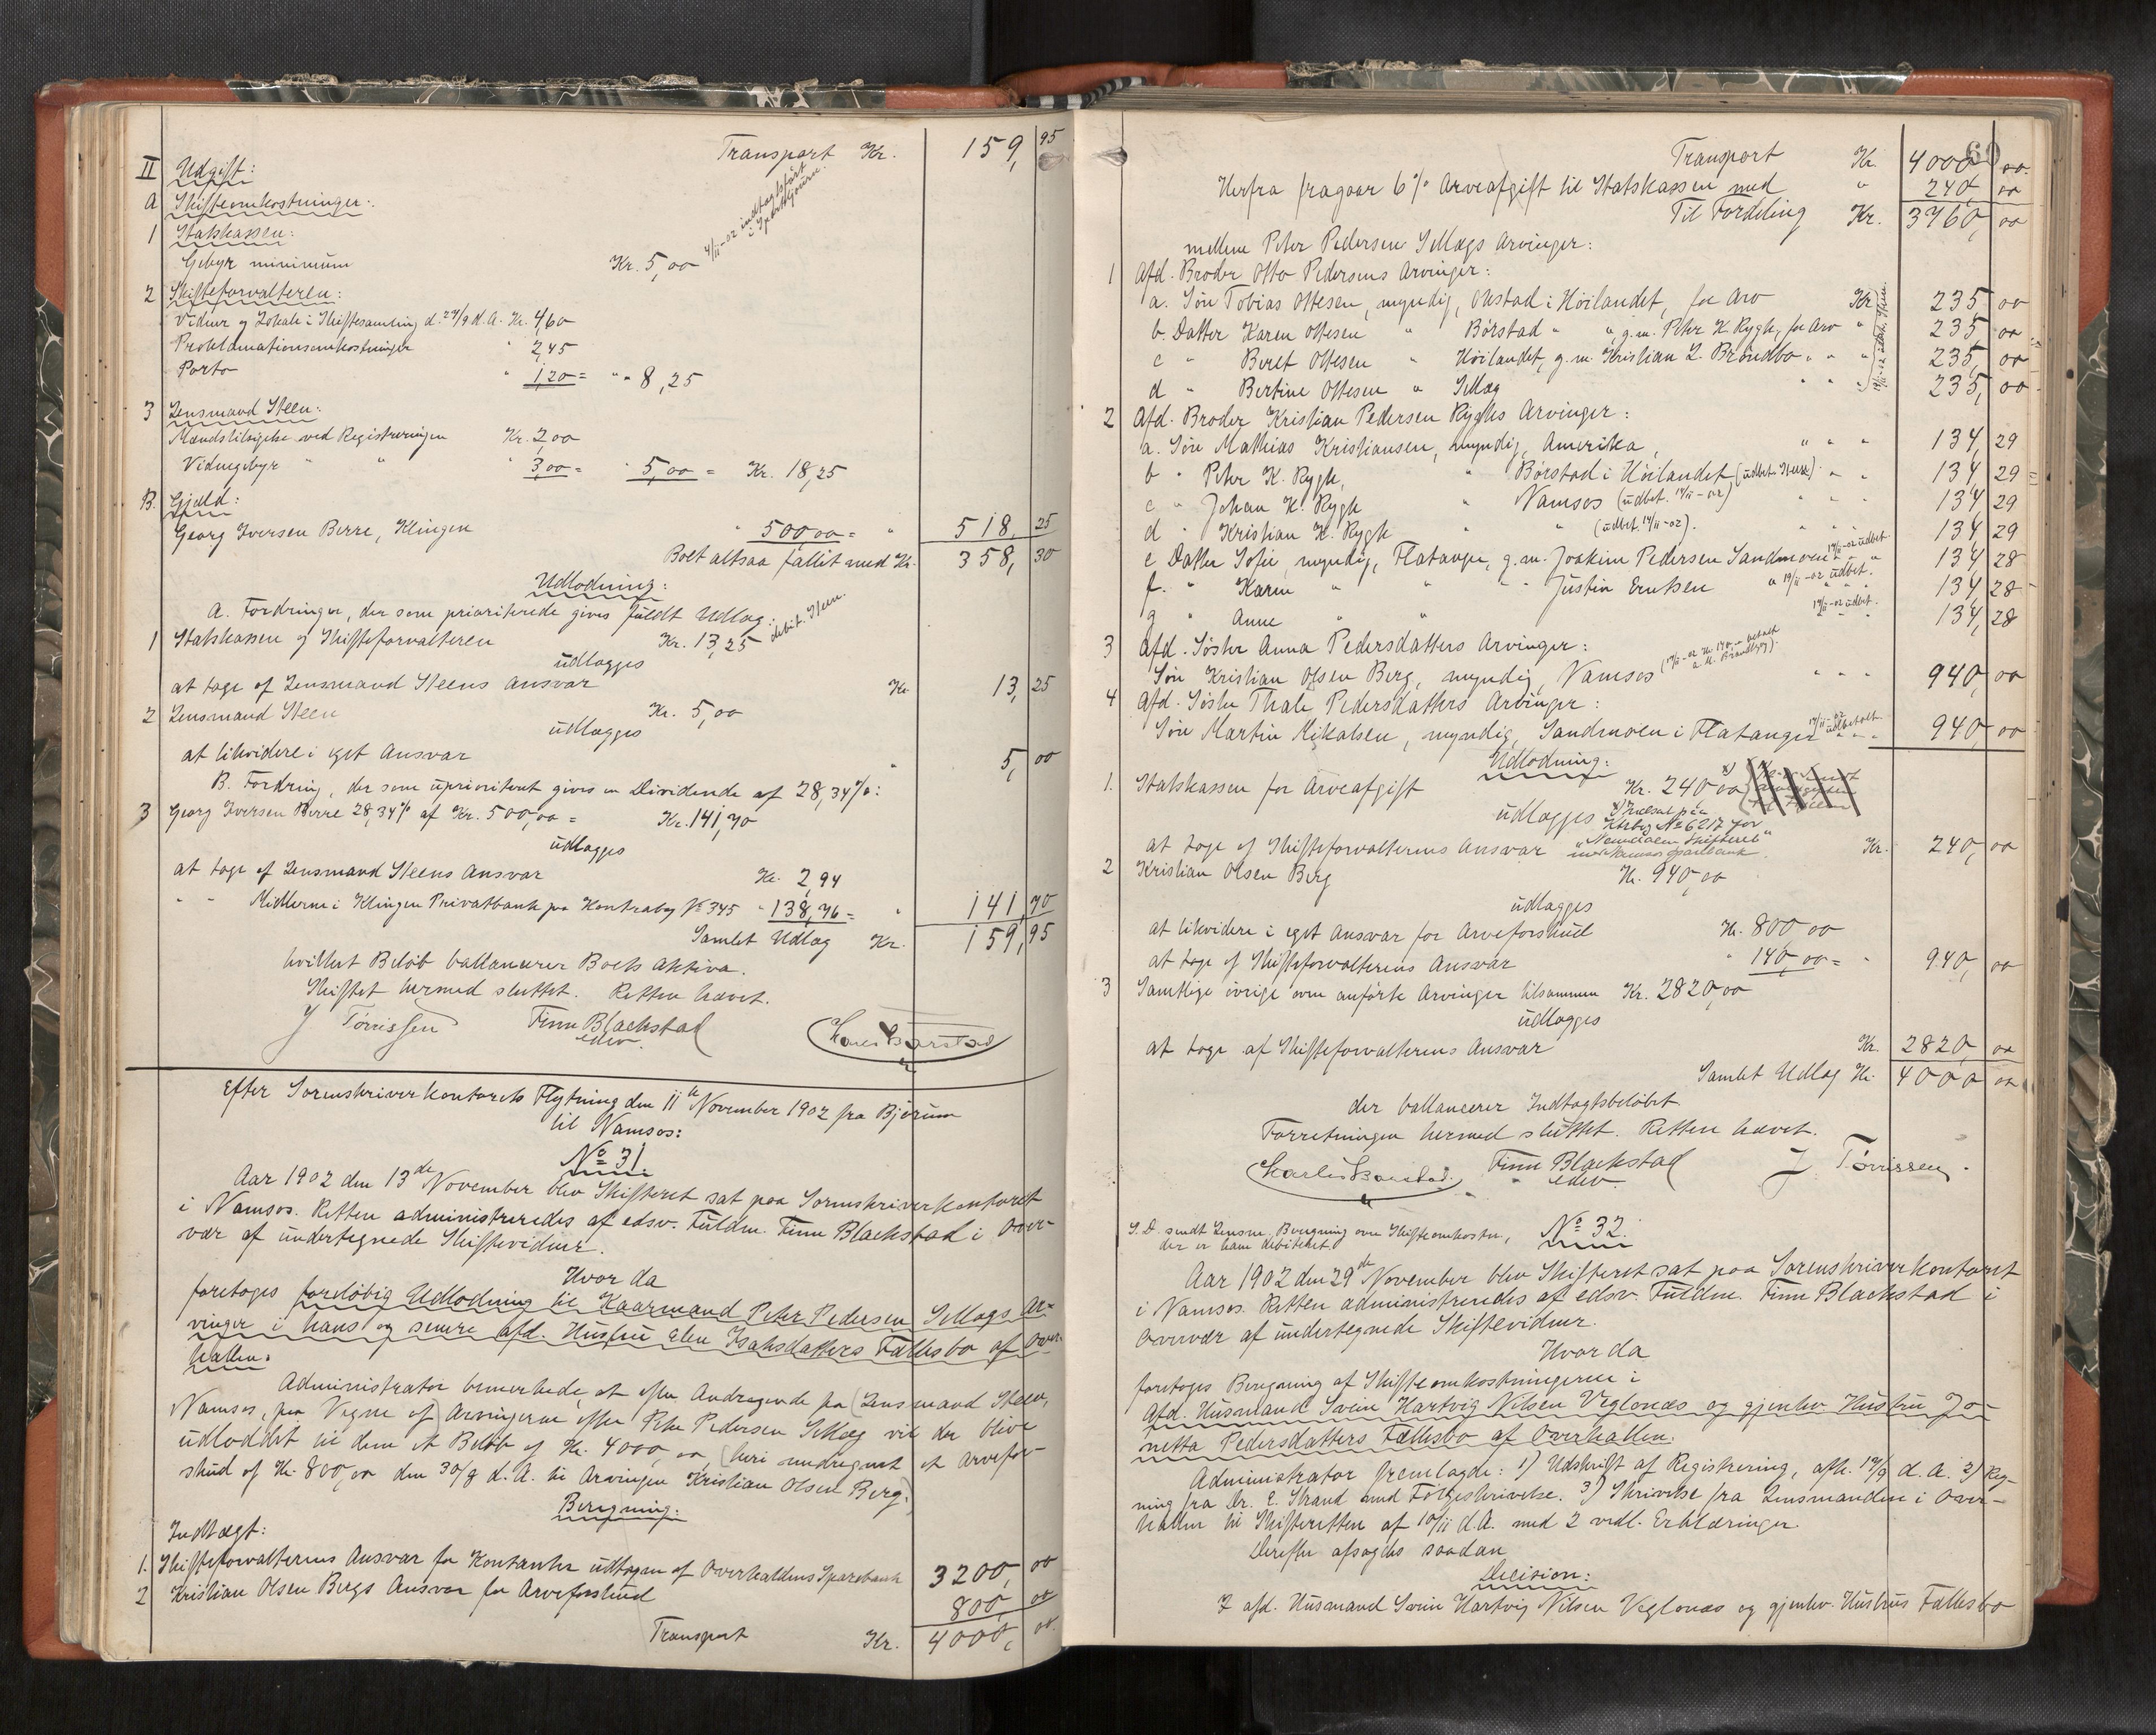 Transport Kr. 159, 95
II Udgift:
A Skifteomkostninger:
1 Statskassen:
Gebyr minimum Kr. 5,00 4/11-02 indtægtsført i Sportkjourn.
2 Skifteforvalteren:
Vidner og Lokale i Skiftesamling d. 24/9 d.A. Kr. 4,60
Proklamationsomkostninger " 2,45
Porto " 1,20 = " " 8,25
3 Lensmand Steen:
Mandstilsigelse ved Registreringen Kr. 2,00
Vidnegebyr " " " 3,00 = " 5,00 = Kr. 18,25
B. Gjæld:
Georg Iversen Berre, Klingen " 500,00 = " 518, 25
Boet altsaa fallit med Kr. 358, 30
Udlodning:
A. Fordringer, der som prioriterede gives fuldt Udlæg:
1 Statskassen og Skifteforvalteren Kr. 13,25 debit. Steen.
udlægges
at tage af Lensmand Steens Ansvar Kr. 13, 25
2 Lensmand Steen Kr. 5,00
udlægges
at likvidere i eget Ansvar " 5, 00
B. Fordring, der som uprioritert gives en Dividende af 28,34%:
3 Georg Iversen Berre 28,34% af Kr. 500,00 = Kr. 141,70
udlægges
at tage af Lensmand Steens Ansvar Kr. 2,94
" " Midlerne i Klingen Privatbank paa Kontrabog No 345 " 138,76 = " 141, 70
Samlet Udlæg Kr. 159, 95
hvilket Beløb ballancerer Boets Aktiva.
Skiftet hermed sluttet. Retten hævet.
J Tørrissen Finn Blackstad
edsv.
Efter Sorenskriverkontorets Flytning den 11te November 1902 fra Bjørum
til Namsos:
No 31
Aar 1902 den 13de November blev Skifteret sat paa Sorenskriverkontoret
i Namsos. Retten administreredes af edsv. Fuldm. Finn Blackstad i Over-
vær af undertegnede Skiftevidner.
Hvor da
foretoges foreløbig Udlodning til Kaarmand Peter Pedersen Sellægs Ar-
vinger i hans og senere afd. Hustru Elen Isaksdatters Fællesbo af Over-
hallen.
Administrator bemerkede, at efter Andragende fra (Lensmand Steen,
Namsos, paa Vegne af) Arvingerne efter Peter Pedersen Sellæg vil der blive
udloddet til dem et Beløb af Kr. 4000,00, (heri medregnet et Arvefor-
skud af Kr. 800,00 den 30/8 d.A. til Arvingen Kristian Olsen Berg.)
Beregning:
Indtægt:
1. Skifteforvalterens Ansvar for Kontanter udtagen af Overhaldens Sparebank 3200, 00
2 Kristian Olsen Bergs Ansvar for Arveforskud 800, 00
Transport Kr. 4000, 00
60
Transport Kr. 4000, 00
Herfra fragaar 6% Arveafgift til Statskassen med " 240, 00
Til Fordeling Kr. 3760, 00
mellem Peter Pedersen Sellægs Arvinger:
1 Afd. Broder Otto Pedersens Arvinger:
a. Søn Tobias Ottesen, myndig, Okstad i Høilandet, for Arv Kr. 235, 00
b. Datter Karen Ottesen " Børstad " " g.m. Peter K. Rygh, for Arv " 235, 00
c " Beret Ottesen " Høilandet, g.m. Kristian L. Brøndbo " " " 235, 00
d " Bertine Ottesen " Sellæg " " " 235, 00
2 Afd. Broder Kristian Pedersen Ryghs Arvinger:
a. Søn Mathias Kristiansen, myndig, Amerika, " " " 134, 29
b " Peter K. Rygh, " Børstad i Høilandet (udbet. Steen) " " 134, 29
c " Johan K. Rygh " Namsos (udbet. 14/11-02) " " " 134, 29
d " Kristian K. Rygh " " (udbet. 14/11-02). " " " 134, 29
e Datter Sofie, myndig, Flatanger, g.m. Joakim Pedersen Sandmoen 19/11-02 udbet. " " 134, 28
f. " Karen " " " " Justin Eriksen " 19/11-02 udbet. " 134, 28
g " Anne " " 19/11-02 udbet. " 134, 28
3 Afd. Søster Anna Pedersdatters Arvinger:
Søn Kristian Olsen Berg, myndig, Namsos " " " 940, 00
4 Afd. Søster Thale Pedersdatters Arvinger:
Søn Martin Mikalsen, myndig, Sandmoen i Flatanger 19/11-02 udbetalt " " 940, 00
Udlodning:
1. Statskassen for Arveafgift Kr. 240,00
udlægges x) Indsat paa
Ktrbog No 6217 for
"Namdalens Skifteret"
at tage af Skifteforvalterens Ansvar ind Namsos Sparebank. Kr. 240, 00
2 Kristian Olsen Berg Kr. 940,00
udlægges
at likvidere i eget Ansvar for Arveforskud Kr. 800,00
at tage af Skifteforvalterens Ansvar " 140,00 = " 940, 00
3 Samtlige øvrige oven anførte Arvinger tilsammen Kr. 2820,00
udlægges
at tage af Skifteforvalterens Ansvar Kr. 2820, 00
Samlet Udlæg Kr. 4000, 00
der ballancerer Indtægtsbeløbet
Forretningen hermed sluttet. Retten hævet.
Finn Blackstad J Tørrissen.
edsv.
S.D. sendt Lensm. Beregning over Skifteomkostn., No 32.
der er ham debiteret.
Aar 1902 den 29de November blev Skifteret sat paa Sorenskriverkontoret
i Namsos. Retten administreredes af edsv. Fuldm. Finn Blackstad i
Overvær af undertegnede Skiftevidner.
Hvor da
foretoges Beregning af Skifteomkostningerne i
Afd. Husmand Svein Hartvig Nilsen Veglonæs og gjenlev. Hustru Jo-
netta Pedersdatters Fællesbo af Overhallen.
Administrator fremlagde: 1) Udskrift af Registrering, afh. 19/9 d.A. 2) Reg-
ning fra Dr. E. Strand med Følgeskrivelse. 3) Skrivelse fra Lensmanden i Over-
hallen til Skifteretten af 10/11 d.A. med 2 vedl. Erklæringer.
Derefter afsagdes saadan
Decision:
I afd. Husmand Svein Hartvig Nilsen Veglonæs og gjenlev. Hustrus Fællesbo